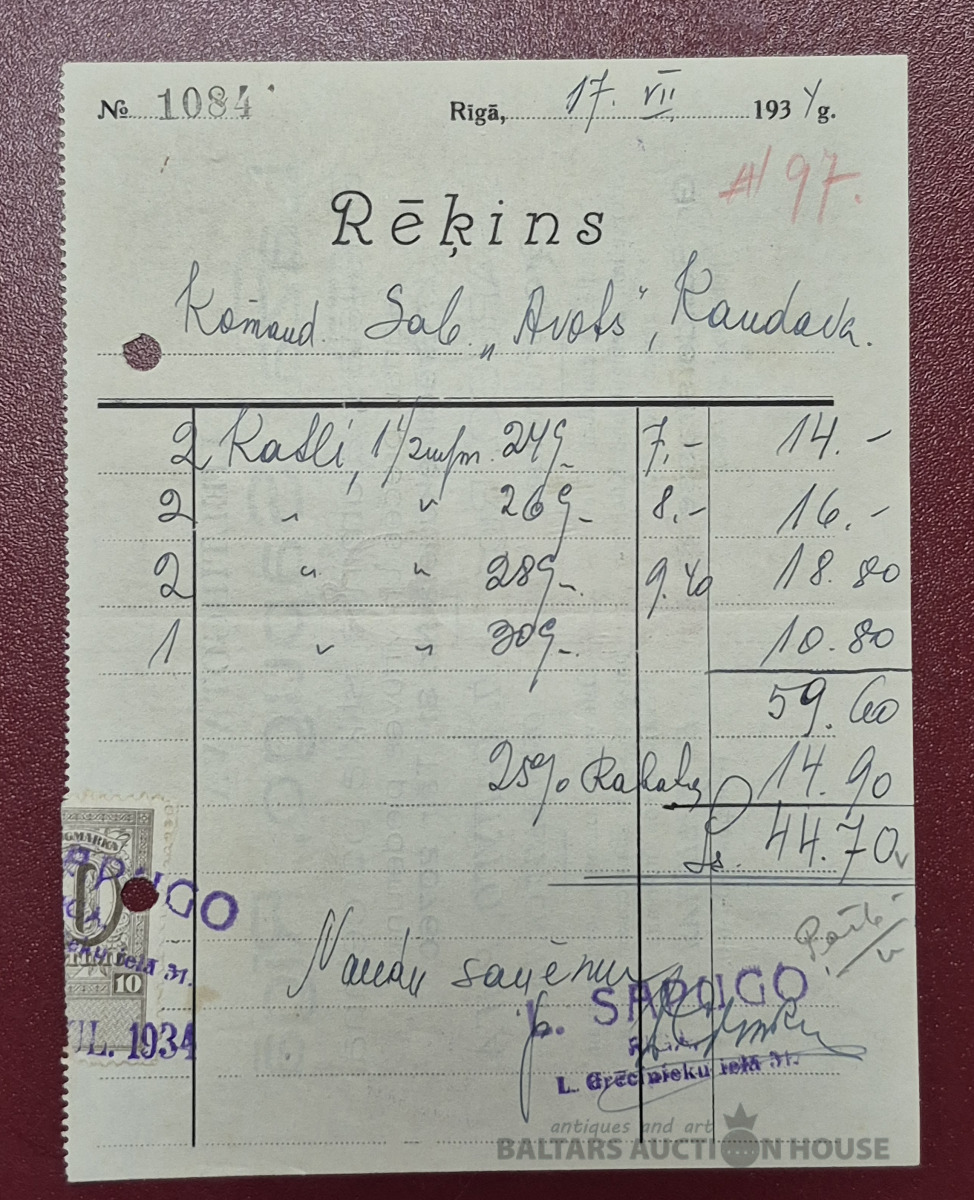 № 1084
Rīgā, 17. VII 1934 g.
# 97.
Rēķins
Komand. Sab. „Avots", Kandava.
2 Katli, 1 1/2 m/m. 24 9. 7.- 14.-
2 " " 26 9. 8.- 16.-
2 " " 28 9. 9.40 18.80
1 " " 30 9. 10.80
59.60
25% Rabats 14.90
Ls. 44.70
Naudu saņēmu
p. SAPUGO
L. Grēcinieku ielā 31.
APUGO
ielā 31.
10
UL. 1934
antiques and art
BALTARS AUCTION HOUSE